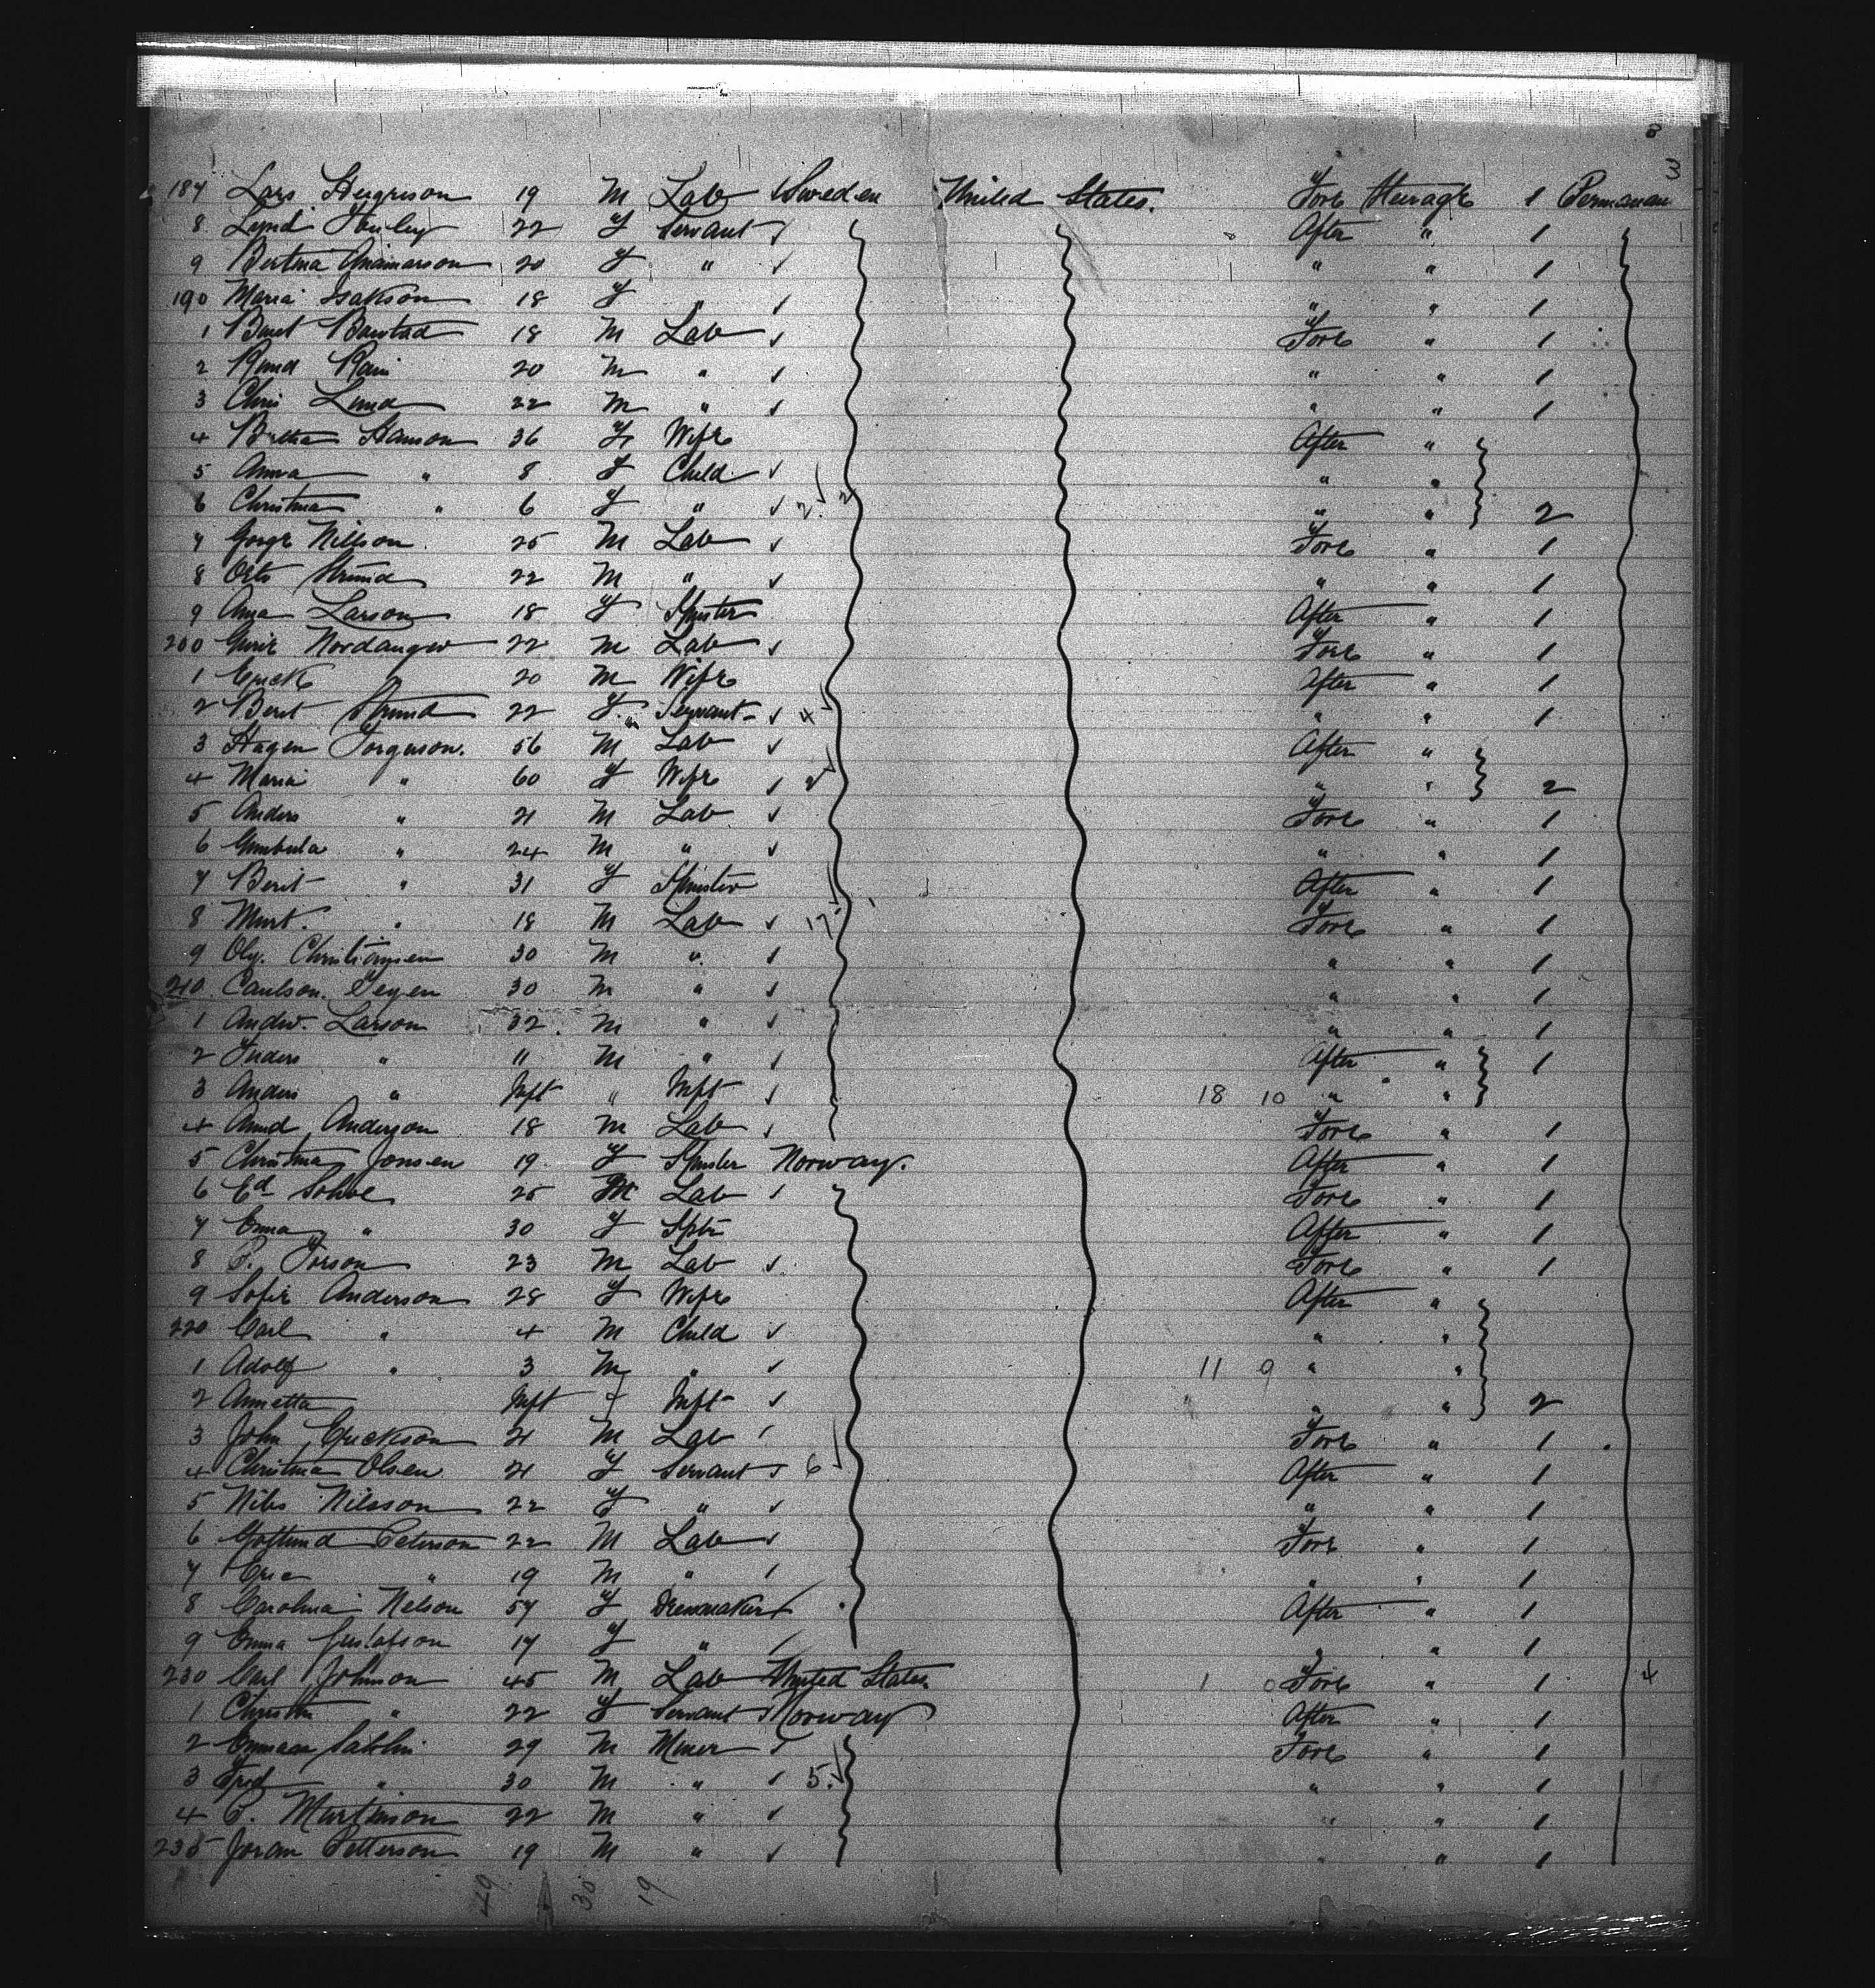 8
3
187 Lars Hergerson 19 M Lab Sweden United States. Fore Steerage 1 Permanan
8 Lynd 22 F Servant After " 1
9 Bertina 20 F " " " 1
190 Maria Isakson 18 F " " " 1
1 Barstad 18 M Lab Fore " 1
2 20 M " " " 1
3 Chris Lund 22 M " " " 1
4 Bertha Hanson 36 F Wife After "
5 Anna " 8 F Child " "
6 Christina " 6 F " 2 2 " " 2
7 Nillson 25 M Lab Fore " 1
8 Strand 22 M " " " 1
9 Anna Larson 18 F Spinster After " 1
200 Nordanger 22 M Lab Fore " 1
1 Erick " 20 M Wife After " 1
2 Beret Strand 22 F Servant 4 " " 1
3 Hagen Torgerson. 56 M Lab After "
4 Maria " 60 F Wife 2 " " 2
5 Anders " 21 M Lab Fore " 1
6 " 24 M " " " 1
7 Berit " 31 F Spinster After " 1
8 Mart. " 18 M Lab 17 Fore " 1
9 Christiansen 30 M " " " 1
210 Caulson. 30 M " " " 1
1 Andw. Larson 32 M " " " 1
2 " " M " After " 1
3 Anders " Inft " Inft 18 10 " "
4 Anderson 18 M Lab Fore " 1
5 Christina Jonsen 19 F Spinster Norway. After " 1
6 Ed 25 M Lab Fore " 1
7 Emma " 30 F Spstr After " 1
8 P. Torson 23 M Lab Fore " 1
9 Sofie Anderson 28 F Wife After "
220 Carl " 4 M Child " "
1 Adolf " 3 M " 11 9 " "
2 Annetta Inft F Inft " " 2
3 John Erickson 21 M Lab Fore " 1
4 Christina Olsen 21 F Servant 6 After " 1
5 Nils Nilsson 22 F " " " 1
6 Peterson 22 M Lab Fore " 1
7 Eric " 19 M " " " 1
8 Carolina Nelson 57 F Dressmaker After " 1
9 Emma Gustafson 17 F " " " 1
230 Carl Johnson 45 M Lab United States. 1 0 Fore " 1 4
1 Christin " 22 F Servant Norway After " 1
2 29 M Miner Fore " 1
3 Fred " 30 M " 5 " " 1
4 C. Martinson 22 M " " " 1
235 Joran Petterson 19 M " " " 1
49 30 19